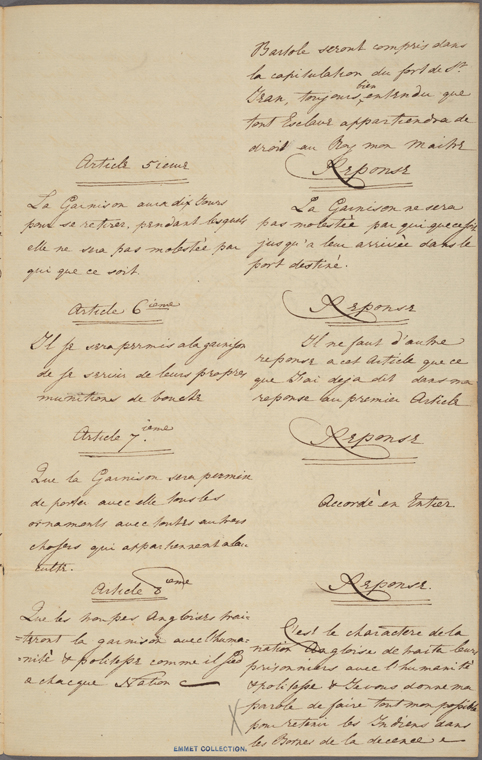 Bartole seront compris dans
la capitulation du fort de St.
Jean, toujours bien entendu que
tout Esclave appartiendra de
droit au Roy mon Maitre
Article 5ieme
La Garnison aura dix Jours
pour se retirer, pendant lesquels
elle ne sera pas molestée par
qui que ce soit
Reponse
La Garnison ne sera
pas molestée par qui que ce soit
jusqu'a leur arrivée dans le
port destiné.
Article 6ieme
Il se sera permis a la garnison
de se servir de leurs propres
munitions de bouche
Reponse
Il ne faut d'autre
reponse a cet Article que ce
que J'ai deja dit dans ma
reponse au premier Article
Article 7ieme
Que la Garnison sera permise
de porter avec elle tous les
ornaments avec toutes autres
choses qui appartiennent a leur
culte.
Reponse
Accordé en Entier.
Article 8ieme
Que les troupes Angloises trai=
=teront la garnison avec l'huma-
nité & politesse comme il sied
a chacque Nation
Reponse.
C'est le charactere de la
nation Angloise de traite leurs
prisonniers avec l'humanité
& politesse & Je vous donne ma
parole de faire tout mon possible
pour retenir les Indiens dans
les Bornes de la decence
X
EMMET COLLECTION.